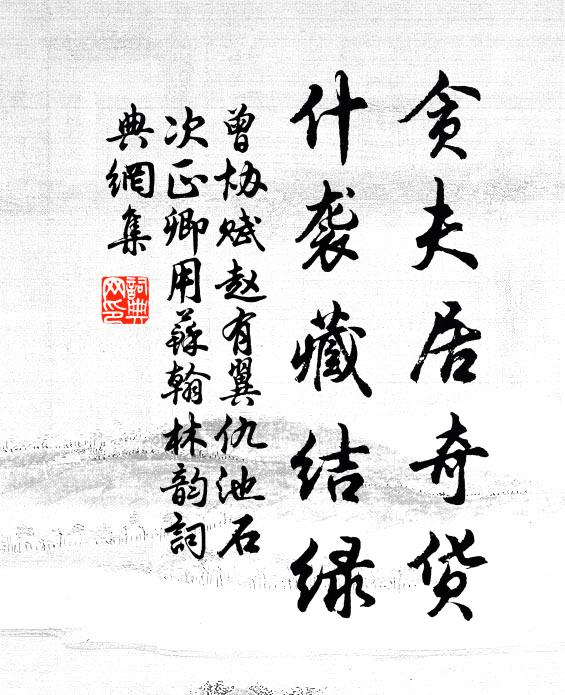 贪夫居奇货
什袭藏结绿
曾协赋赵有翼仇池石
次正卿用蘇翰林韵詞
典網集
詞典网印